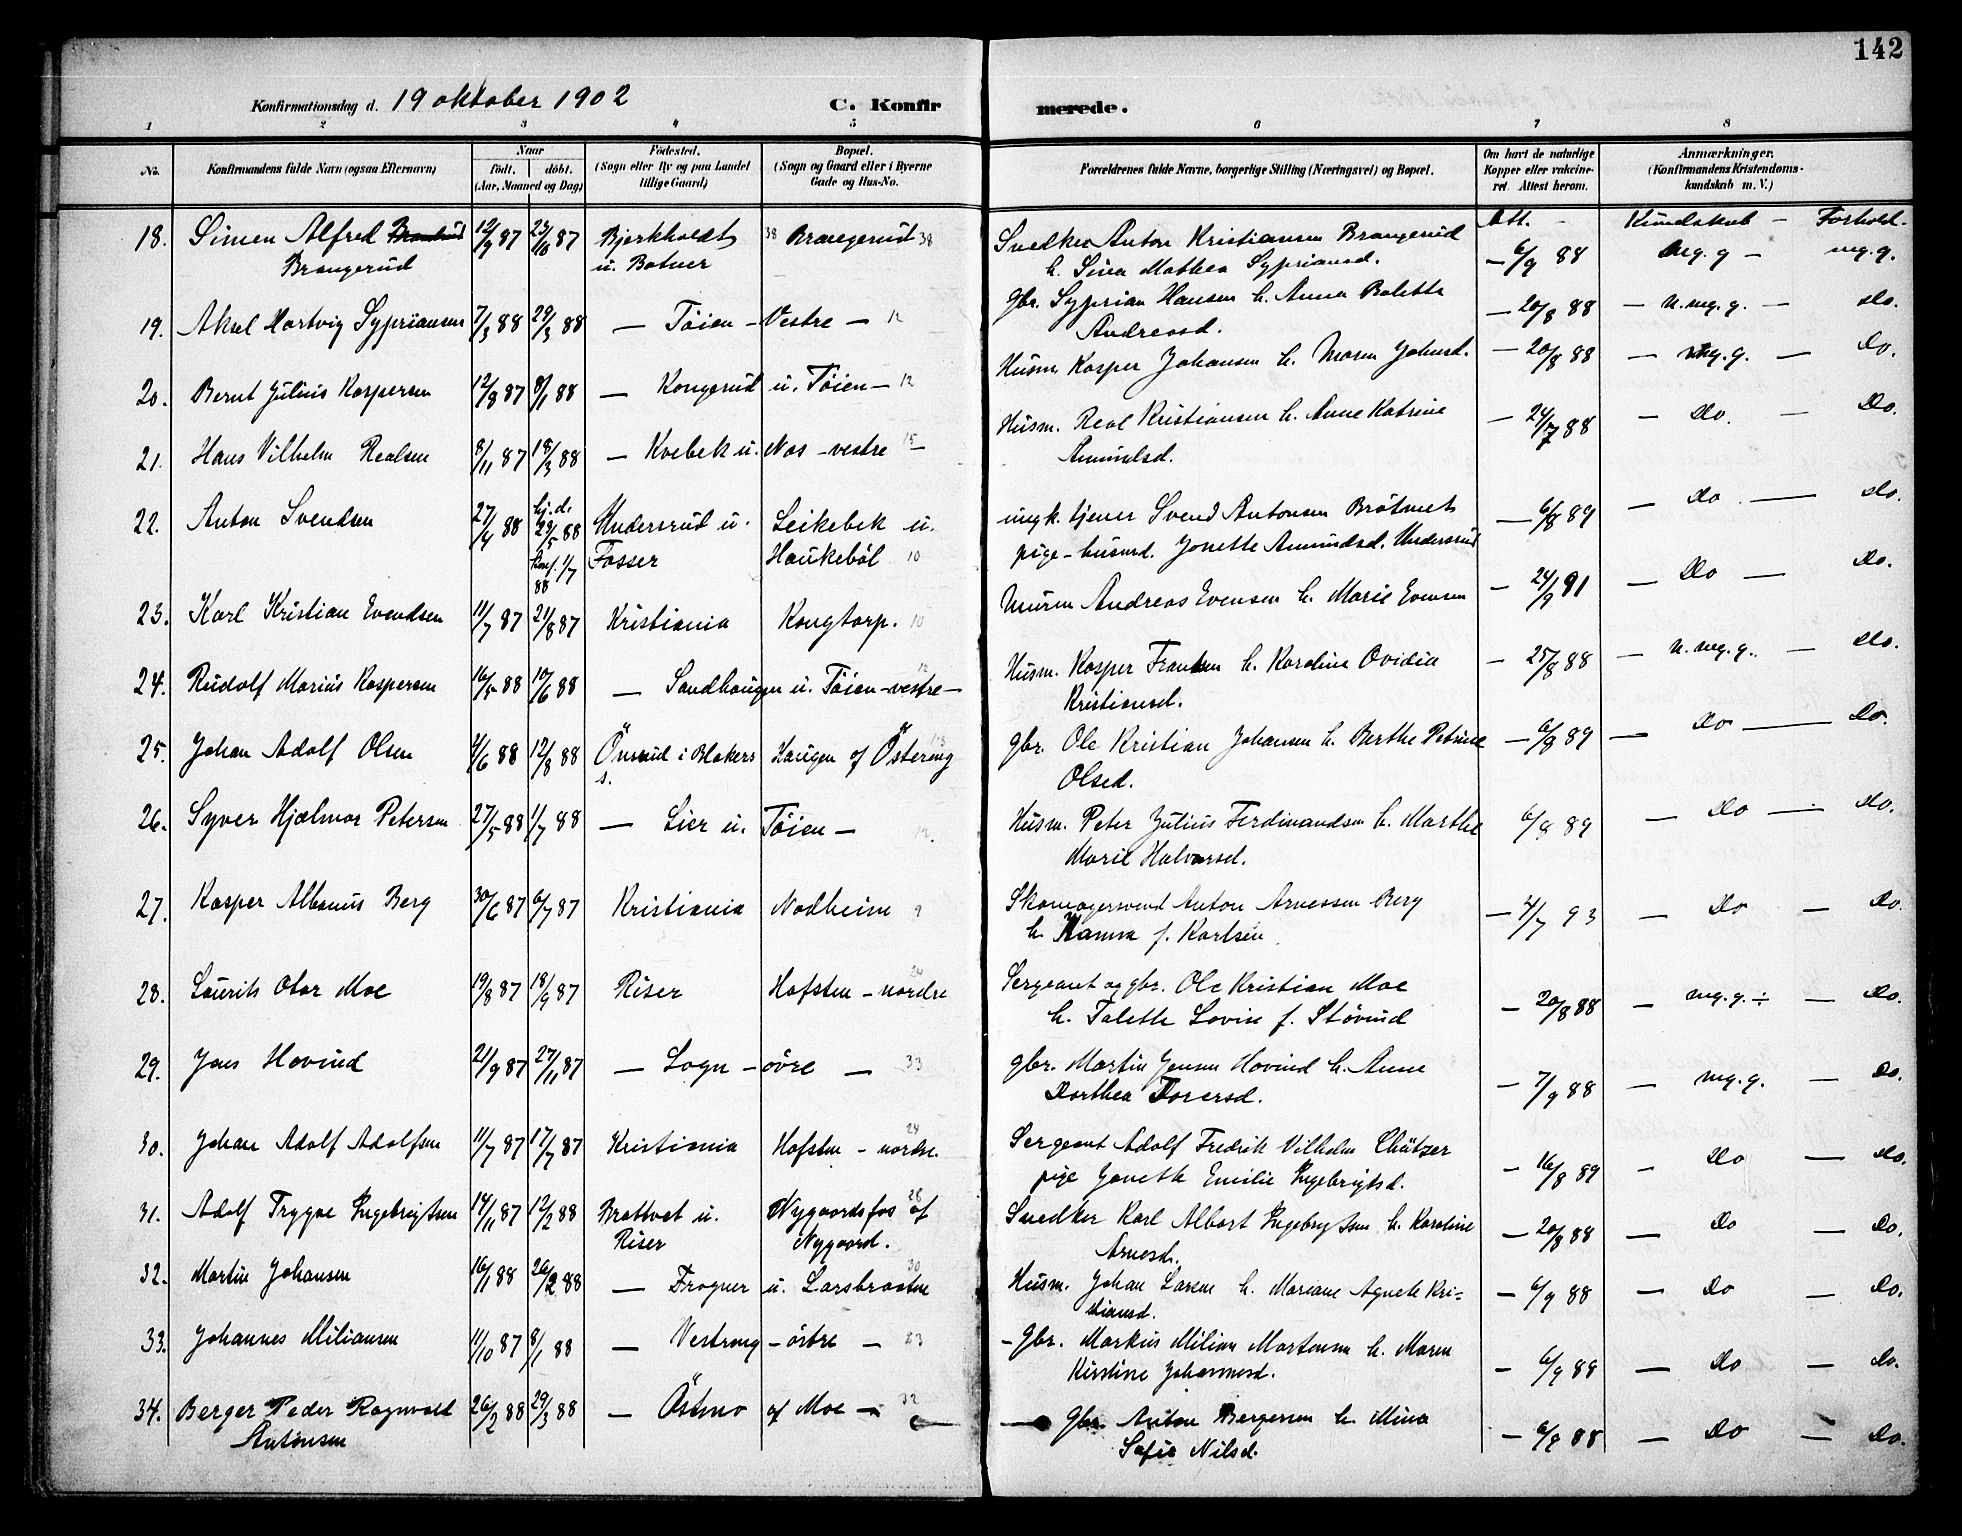 142
Konfirmationsdag d. 19 oktober 1902
C. Konfirmerede.
1 2 3 4 5 6 7 8
No.
Konfirmandens fulde Navn (ogsaa Efternavn)
Naar
födt. döbt.
(Aar, Maaned og Dag)
Födested.
(Sogn eller By og paa Landet
tillige Gaard)
Bopæl.
(Sogn og Gaard eller i Byerne
Gade og Hus-No.
Forældrenes fulde Navne, borgerlige Stilling (Næringsvei) og Bopæl.
Om havt de naturlige
Kopper eller vakcine-
ret. Attest herom.
Anmærkninger.
(Konfirmandens Kristendoms-
kundskab m. V.)
Att. - Kundskab - Forhold.
18. Simen Alfred 12/9 87 23/10 87 Bjørkholdt 38 Brangerud 38 Snedker Anton Kristiansen Brangerud - 6/9 88 mg. g - mg. g.
Brangerud u. Botner h. Sina Mathea Sypriansd.
19. Aksel Hartvig Sypriansen 7/3 88 29/3 88 — Töien - Vestre — 12 gbr. Syprian Hansen h. Anna Bolette - 20/8 88 - n. mg. g. - do.
Andreasd.
20. Bernt Julius Kaspersen 12/8 87 8/1 88 — Kongerud u. Töien - 12 Husm. Kasper Johansen h. Maren Johnsd. - 20/8 88 - mg. g. - Do.
21. Hans Vilhelm Realsen 8/11 87 18/3 88 — Kvebek u. Nas - vestre 15 - Husm. Real Kristiansen h. Anne Katrine - 24/7 88 - Do. - Do.
Amundsd.
22. Anton Svendsen 27/4 88 hj. d. 29/5 88 Undersrud u. Leikebek u. ungk. tjener Svend Antonsen Brötmet - 6/8 89 - Do - do.
konf. 1/7 88 Fosser Haukeböl 10 pige - husmd. Jonette Amundsd. Undersrud
23. Karl Kristian Evendsen 11/7 87 21/8 87 Kristiania Kongtorp. 10 Murer Andreas Evensen h. Marie Evensen - 24/9 91 - Do - Do.
24. Rudolf Marius Kaspersen 16/5 88 10/6 88 — Sandhaugen u. Töien - vestre - 12 Husm. Kasper Frantsen h. Karoline Ovidia - 25/8 88 - n. mg. g. - do.
Kristiansd.
25. Johan Adolf Olsen 4/6 88 12/8 88 Önsrud i Blakers Haugen af Östereng 13 gbr. Ole Kristian Johansen h. Berthe Petrine - 6/8 89 - Do - Do.
s. Olsed.
26. Syver Hjalmar Petersen 27/5 88 1/7 88 — Lier u. Töien - 12. Husm. Peter Julius Ferdinandsen h. Marthe 6/8 89 - Do - Do.
Marie Halvorsd.
27. Kasper Albanus Berg 30/6 87 6/7 87 Kristiania Nodheim 9 Skomagersvend Anton Arnessen Berg - 4/7 93 - Do - Do.
h. Hanna f. Karlsen
28. Laurits Otar Moe 19/8 87 18/9 87 Riser Hofsten - nordre 24 Sergeant og gbr. Ole Kristian Moe - 20/8 88 - mg. g. ÷ - Do.
h. Talette Lovise f. Stövind
29. Jens Hovind 21/9 87 27/11 87 — Logn - övre — 33 gbr. Martin Jensen Hovind h. Anne - 7/9 88 - mg. g. - Do.
Dorthea Toversd.
30. Johan Adolf Adolfsen 11/7 87 17/7 87 Kristiania Hofsten - nordre. 24 Sergeant Adolf Fredrik Vilhelm Chützer - 16/8 89 - Do - Do.
pige Joneth Emilie Ingebrigtsd.
31. Adolf Trygve Ingebrigtsen 14/11 87 12/2 88 Brattvet u. Nygaardsfos af 28 Snedker Karl Albert Ingebrigtsen h. Karoline - 20/8 88 - Do - Do.
Riser Nygaard. Arnesd.
32. Martin Johansen 16/1 88 26/2 88 — Frogner u. Larsbraaten 30 Husm. Johan Larsen h. Mariane Agnete Kri= - 6/9 88 - Do - Do.
stiansd.
33. Johannes Miliansen 11/10 87 8/1 88 — Vestreng - östre - 83 - Gbr. Markus Milian Martensen h. Maren - 6/9 88 - Do - Do.
Kirstine Johannesd.
34. Berger Peder Ragnvald 26/2 88 29/3 88 — Östmo af Moe - 32 — Gbr. Anton Bergersen h. Mina - 6/8 88 - Do - Do.
Antonsen Sofie Nilsd.